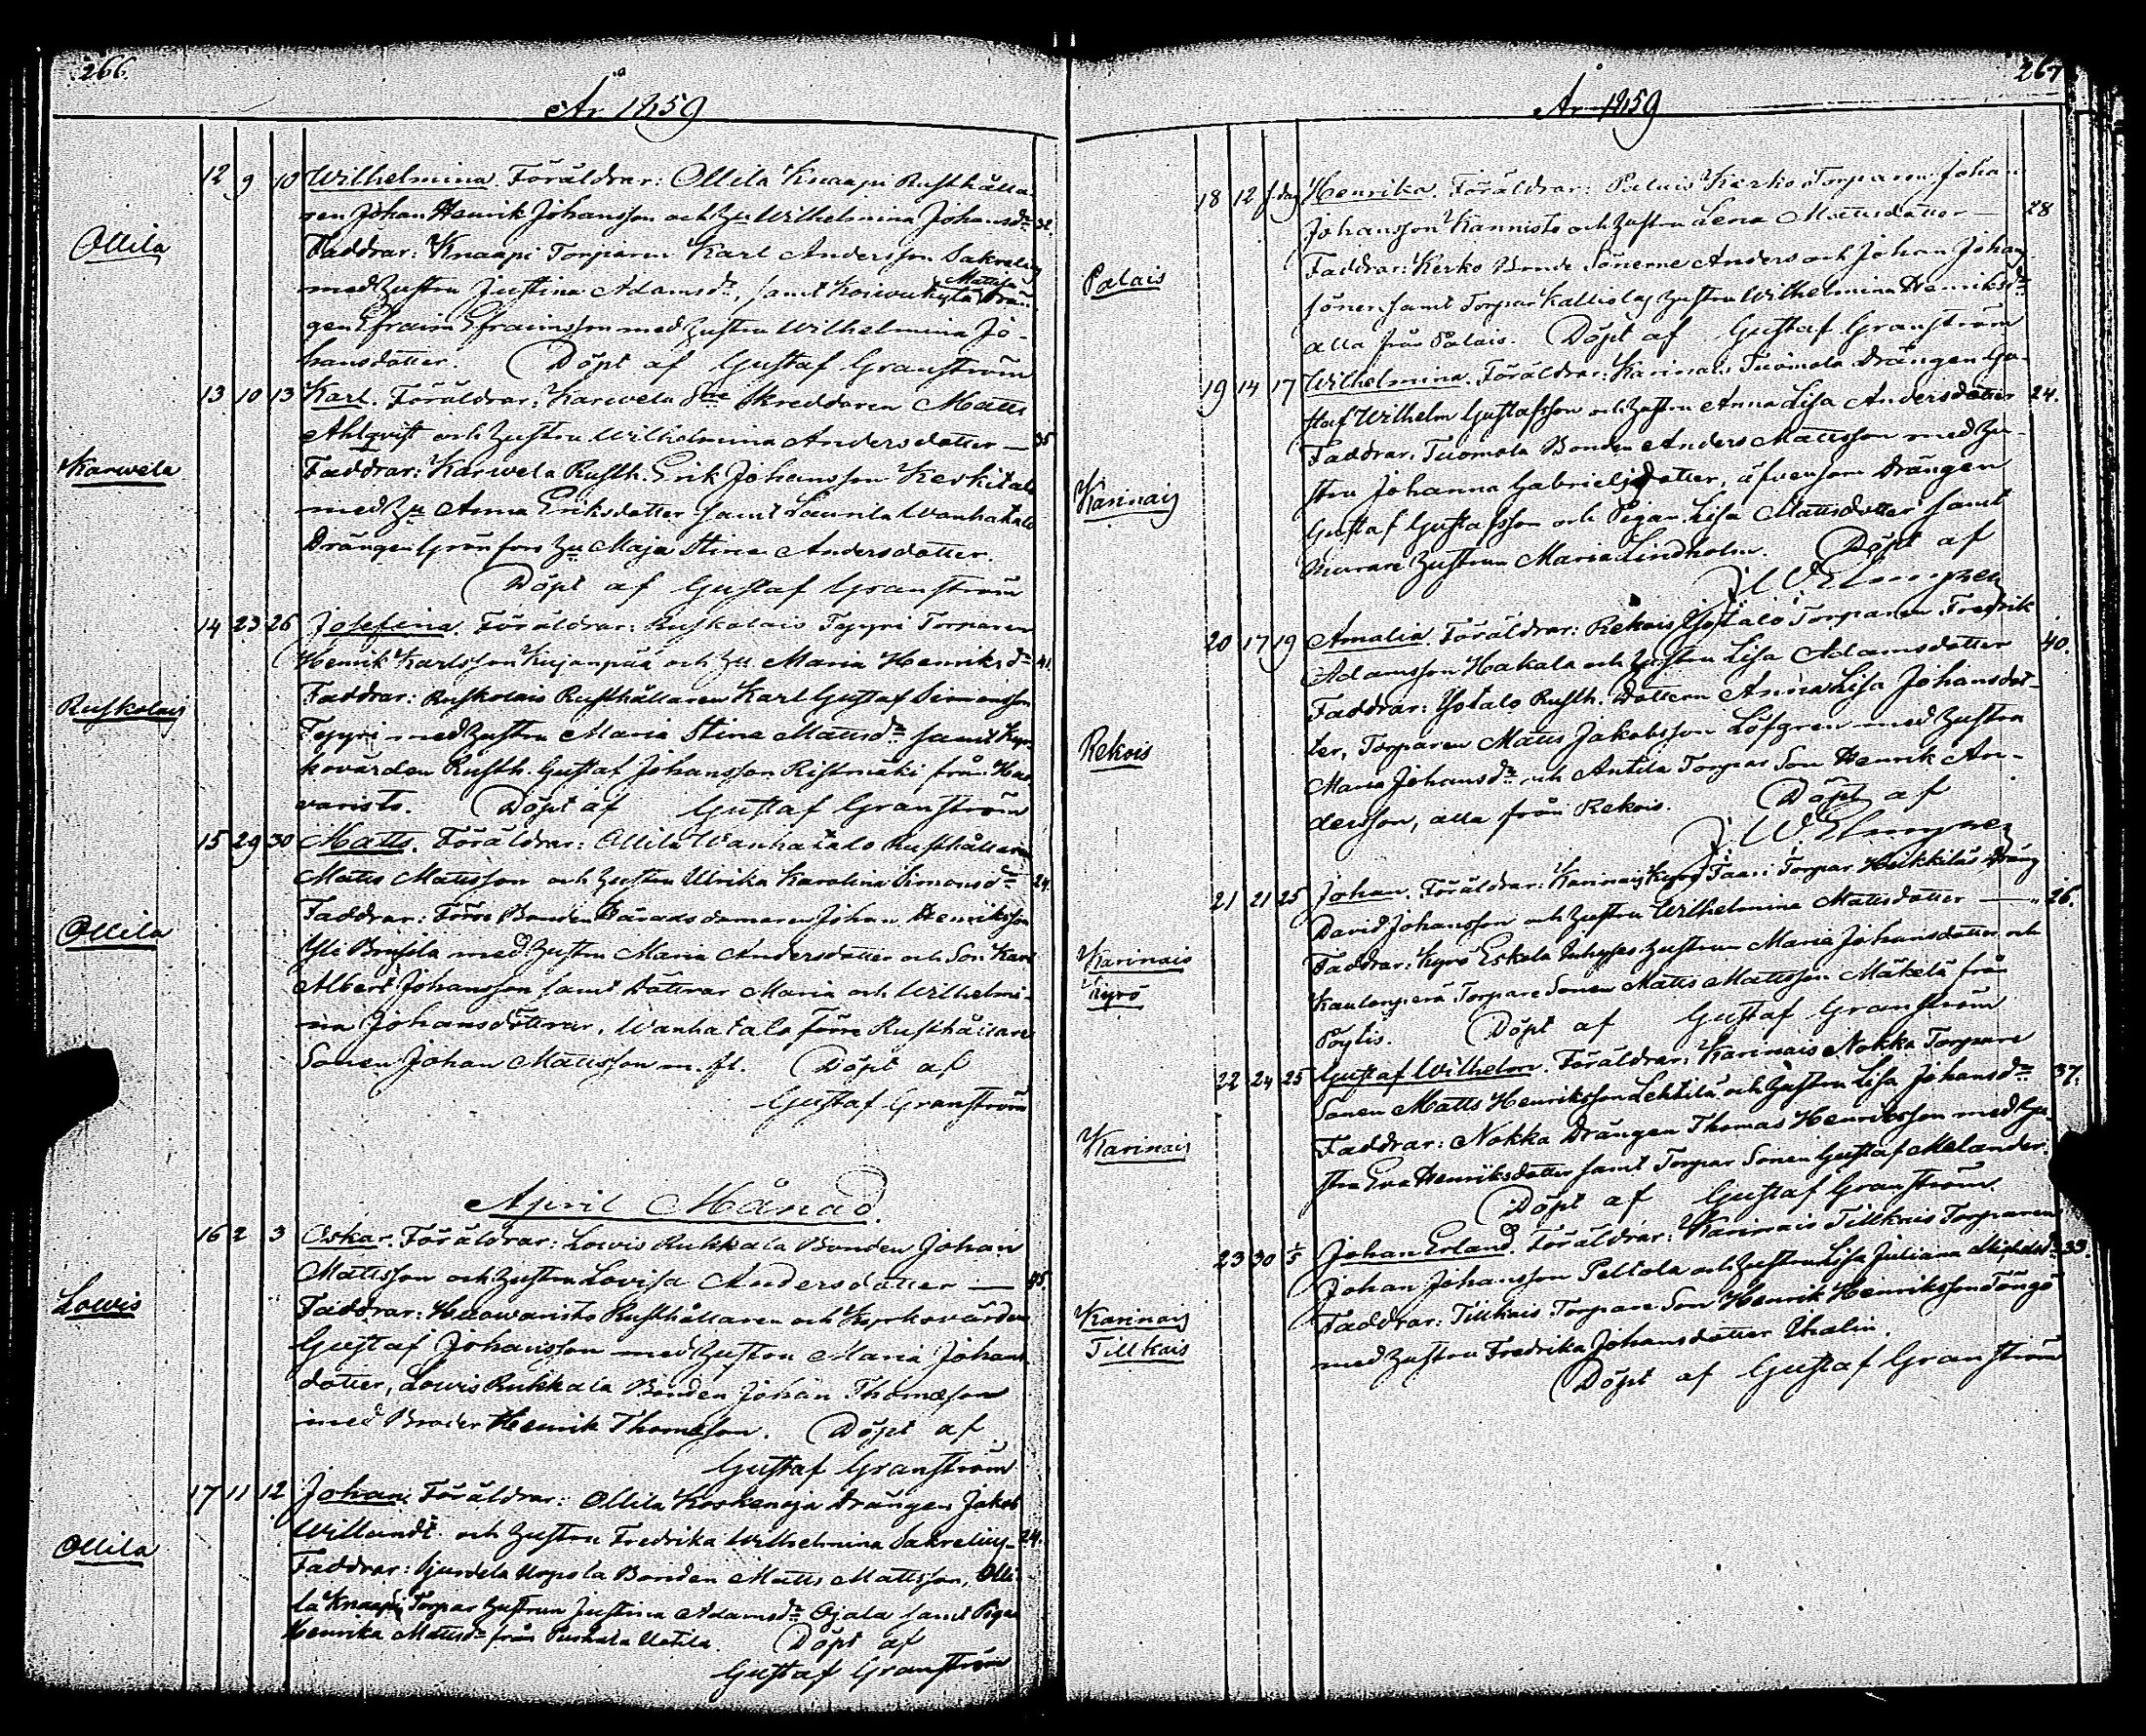 266.
År 1859
12 9 10 Wilhelmina. Föräldrar: Ollila Knaapi Rusthålla-
ren Johan Henrik Johansson och Hu Wilhelmina Johansdr 32.
Ollila
Faddrar: Knaapi Torparen Karl Andersson Sakrelius
med hustru Justina Adamsdr, samt Koivukylä Mattila Drän-
gen Efraim Efraimsson med hustru Wilhelmina Jo-
hansdotter. Döpt af Gustaf Granström
13 10 13 Karl. Föräldrar: Karwela Skreddaren Matts
Ahlqvist och hustru Wilhelmina Andersdotter — 35
Karwela
Faddrar: Karwela Rusth. Erik Johansson Keskitalo
med Hu Anna Eriksdotter samt Laurila Wanhatalo
Drängen Grönfors Hu Maja Stina Andersdotter.
Döpt af Gustaf Granström
14 23 26 Josefina. Föräldrar: Ruskolais Teppri Torparen
Henrik Karlsson Kujanpää och Hu. Maria Henriksdr 41.
Ruskolais
Faddrar: Ruskolais Rusthållaren Karl Gustaf Simonsson
med hustru Maria Stina Mattsdr samt Kyr-
kovärden Rusth. Gustaf Johansson Ristimäki från Haa-
varisto. Döpt af Gustaf Granström
15 29 30 Matts. Föräldrar: Ollila Wanhatalo Rusthållaren
Matts Mattsson och hustru Ulrika Karolina Simonsdr 24.
Ollila
Faddrar: Förre Bonden Häradsdomaren Johan Henriksson
Yli med hustru Maria Andersdotter och Son Karl
Albert Johansson samt Döttrar Maria och Wilhelmi-
na Johansdöttrar, Wanhatalo förre Rusthållare
Sonen Johan Mattsson m. fl. Döpt af
Gustaf Granström
April Månad.
16 2 3 Oskar. Föräldrar: Lowis Rukkala Bonden Johan
Mattsson och hustru Lovisa Andersdotter — 45.
Lowis
Faddrar: Haavaristo Rusthållaren och Kyrkovärden
Gustaf Johansson med hustru Maria Johans-
dotter, Lowis Rukkala Bonden Johan Thomasson
med Broder Henrik Thomasson. Döpt af
Gustaf Granström
17 11 12 Johan. Föräldrar: Ollila Koskenoja Drängen Jakob
Willandt och hustru Fredrika Wilhelmina Sakrelius 24.
Ollila
Faddrar: Bonden Matts Mattsson, Olli-
la Knaapi Torpar hustrun Justina Adamsdr Ojala samt Pigan
Henrika Mattsdr från Uotila. Döpt af
Gustaf Granström
267
År 1859
18 12 s. dag Henrika. Föräldrar: Palais Kerko Torparen Johan
Johansson Kannisto och hustru Lena Mattsdotter — 28
Palais
Faddrar: Kerko Bonde Sönerne Anders och Johan Johans-
söner samt Torpar Kallio hustru Wilhelmina Henriksdr
alla från Palais. Döpt af Gustaf Granström
19 14 17 Wilhelmina. Föräldrar: Karinais Tuomola Drängen Gu-
staf Wilhelm Gustafsson och hustru Anna Lisa Andersdotter 24.
Faddrar: Tuomola Bonden Anders Mattsson med hu-
Karinais
stru Johanna Gabrielsdotter, äfvensom Drängen
Gustaf Gustafsson och Pigan Lisa Mattsdotter samt
Murare hustrun Maria Lindholm. Döpt af
20 17 19 Amalia. Föräldrar: Rekois Yötalo Torparen Fredrik
Adamsson Hakala och hustru Lisa Adamsdotter 40.
Faddrar: Yötalo Rusth. Dottern Anna Lisa Johansdot-
Rekois
ter, Torparen Matts Jakobsson Löfgren med hustru
Maria Johansdr och Antila Torpar Son Henrik An-
dersson, alla från Rekois. Döpt af
21 21 25 Johan. Föräldrar: Karinais Kyrö Paari Torpar Heikkiläs Dräng
David Johansson och hustru Wilhelmina Mattsdotter — 26.
Karinais
Kyrö
Faddrar: Kyrö Eskola Inhyses hustrun Maria Johansdotter och
Kaulanperä Torpare Sonen Matts Mattsson Mäkelä från
Pöytis. Döpt af Gustaf Granström
22 24 25 Gustaf Wilhelm. Föräldrar: Karinais Nokka Torpare
Sonen Matts Henriksson Lehtilä och hustru Lisa Johansdr 37.
Karinais
Faddrar: Nokka Drängen Thomas Henriksson med hu-
stru Eva Henriksdotter samt Torpar Sonen Gustaf Melander.
Döpt af Gustaf Granström.
23 30 1/5 Johan Erland. Föräldrar: Karinais Tillkais Torparen
Johan Johansson Peltola och hustru Lisa Juliana Michelsdr 33.
Karinais
Tillkais
Faddrar: Tillkais Torpare Son Henrik Henriksson
med hustru Fredrika Johansdotter Thalin.
Döpt af Gustaf Granström